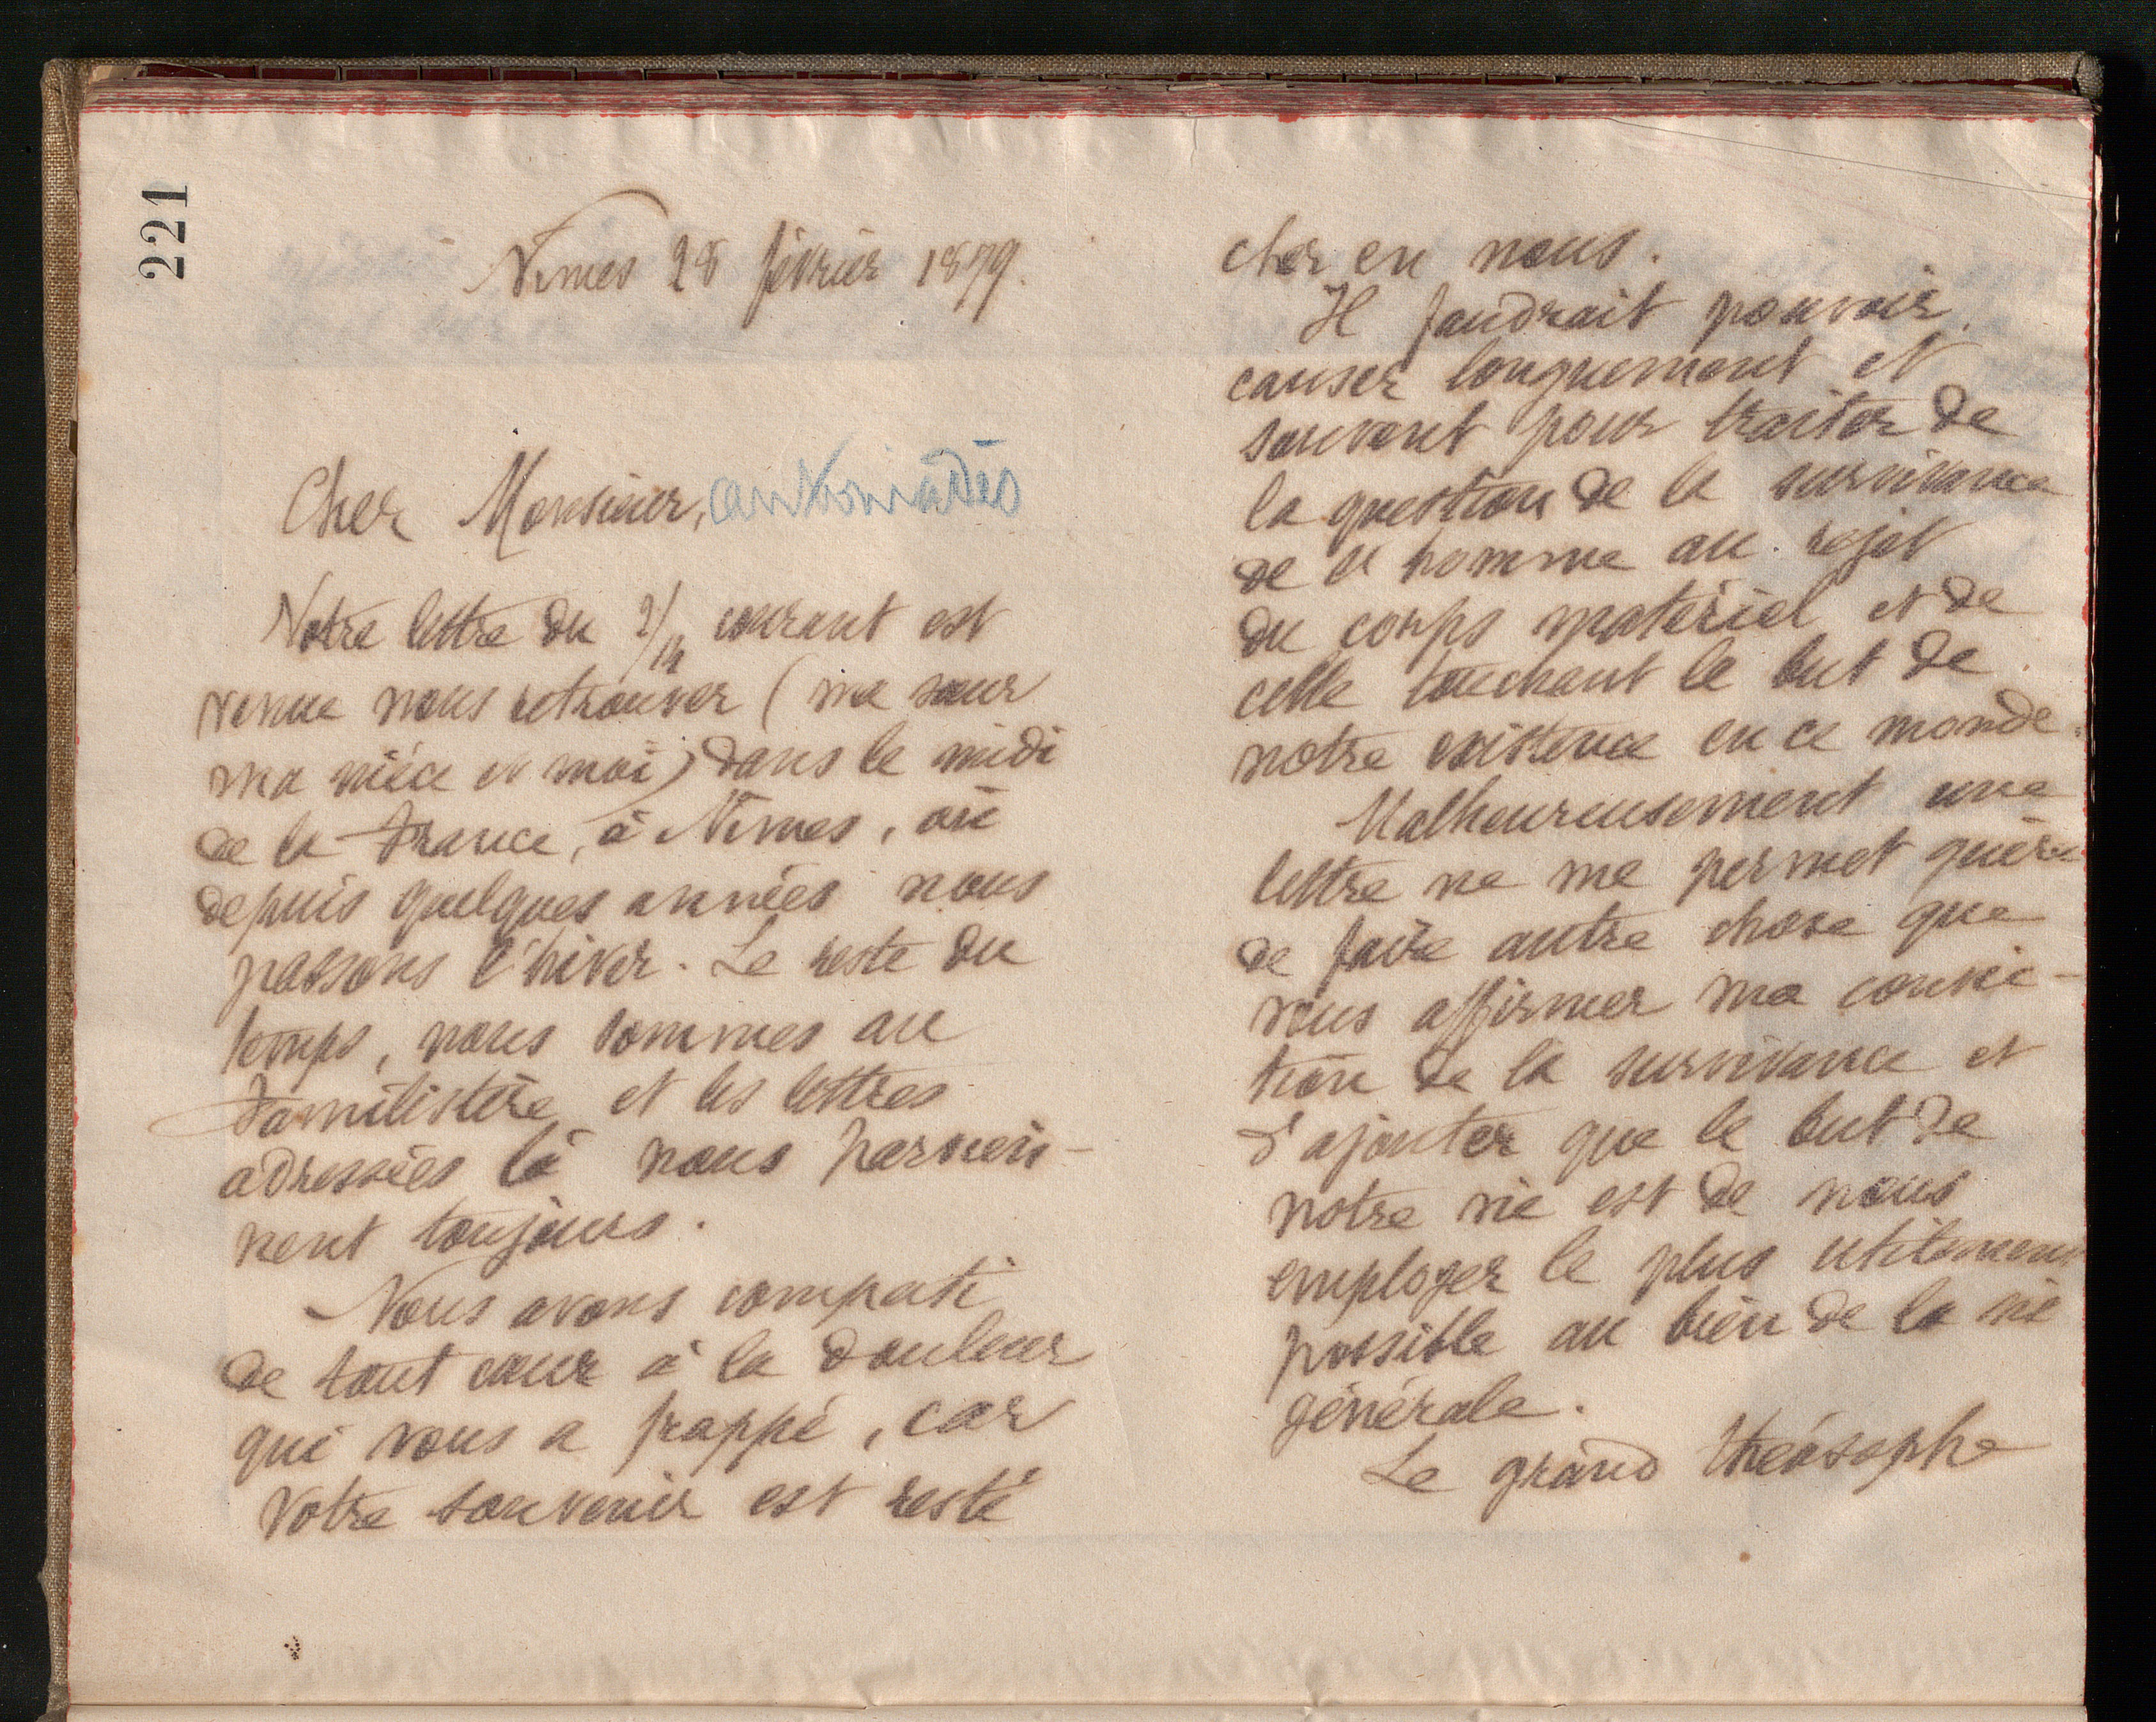 221
Nîmes 28 février 1879.
Cher Monsieur, Antoniadès
Votre lettre du 2/14 courant est
venue nous retrouver (ma sœur
ma nièce et moi) dans le midi
de la France, à Nîmes, où
depuis quelques années nous
passons l'hiver. Le reste du
temps, nous sommes au
Familistère et les lettres
adressées là nous parvien-
nent toujours.
Nous avons compati
de tout cœur à la douleur
qui vous a frappé, car
votre souvenir est resté
cher en nous.
Il faudrait pouvoir
causer longuement et
souvent pour traiter de
la question de la survivance
de l'homme au rejet
du corps matériel et de
celle touchant le but de
notre existence en ce monde.
Malheureusement une
lettre ne me permet guère
de faire autre chose que
vous affirmer ma convic-
tion de la survivance et
d'ajouter que le but de
notre vie est de nous
employer le plus utilement
possible au bien de la vie
générale.
Le grand théosophe